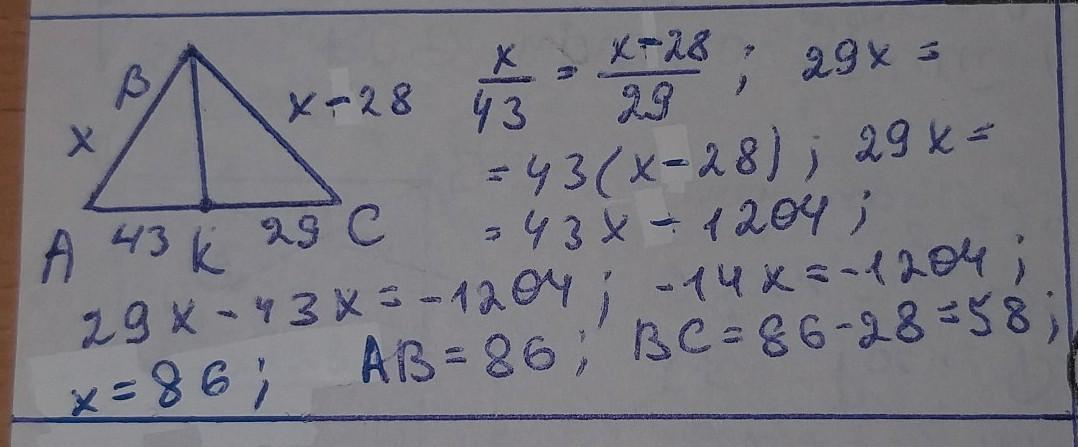 B
x
x-28
A 43 K 29 C
x/43 = x-28/29 ; 29x =
= 43(x-28) ; 29x =
= 43x - 1204 ;
29x - 43x = -1204 ; -14x = -1204 ;
x = 86 ; AB = 86 ; BC = 86-28 = 58 ;